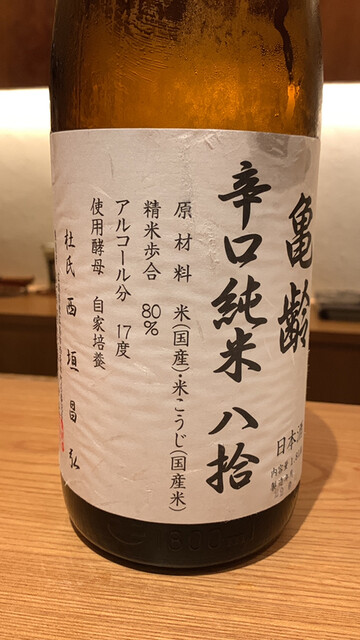 亀齢
辛口純米 八拾
日本酒
原材料 米(国産)・米こうじ(国産米)
精米歩合 80%
アルコール分 17度
使用酵母 自家培養
杜氏 西垣昌弘